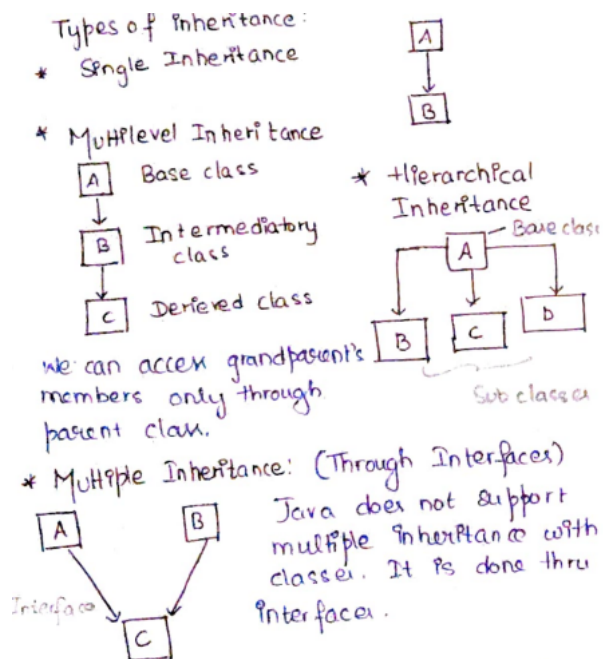 Types of inheritance:
* Single Inheritance
A
B
* Multilevel Inheritance
A Base class
B Intermediatory
class
C Derieved class
we can access grandparent's
members only through
parent class.
* Hierarchical
Inheritance
Base class
A
B C D
Sub classes
* Multiple Inheritance: (Through Interfaces)
A B
Interface
C
Java does not support
multiple inheritance with
classes. It is done thru
interfaces.